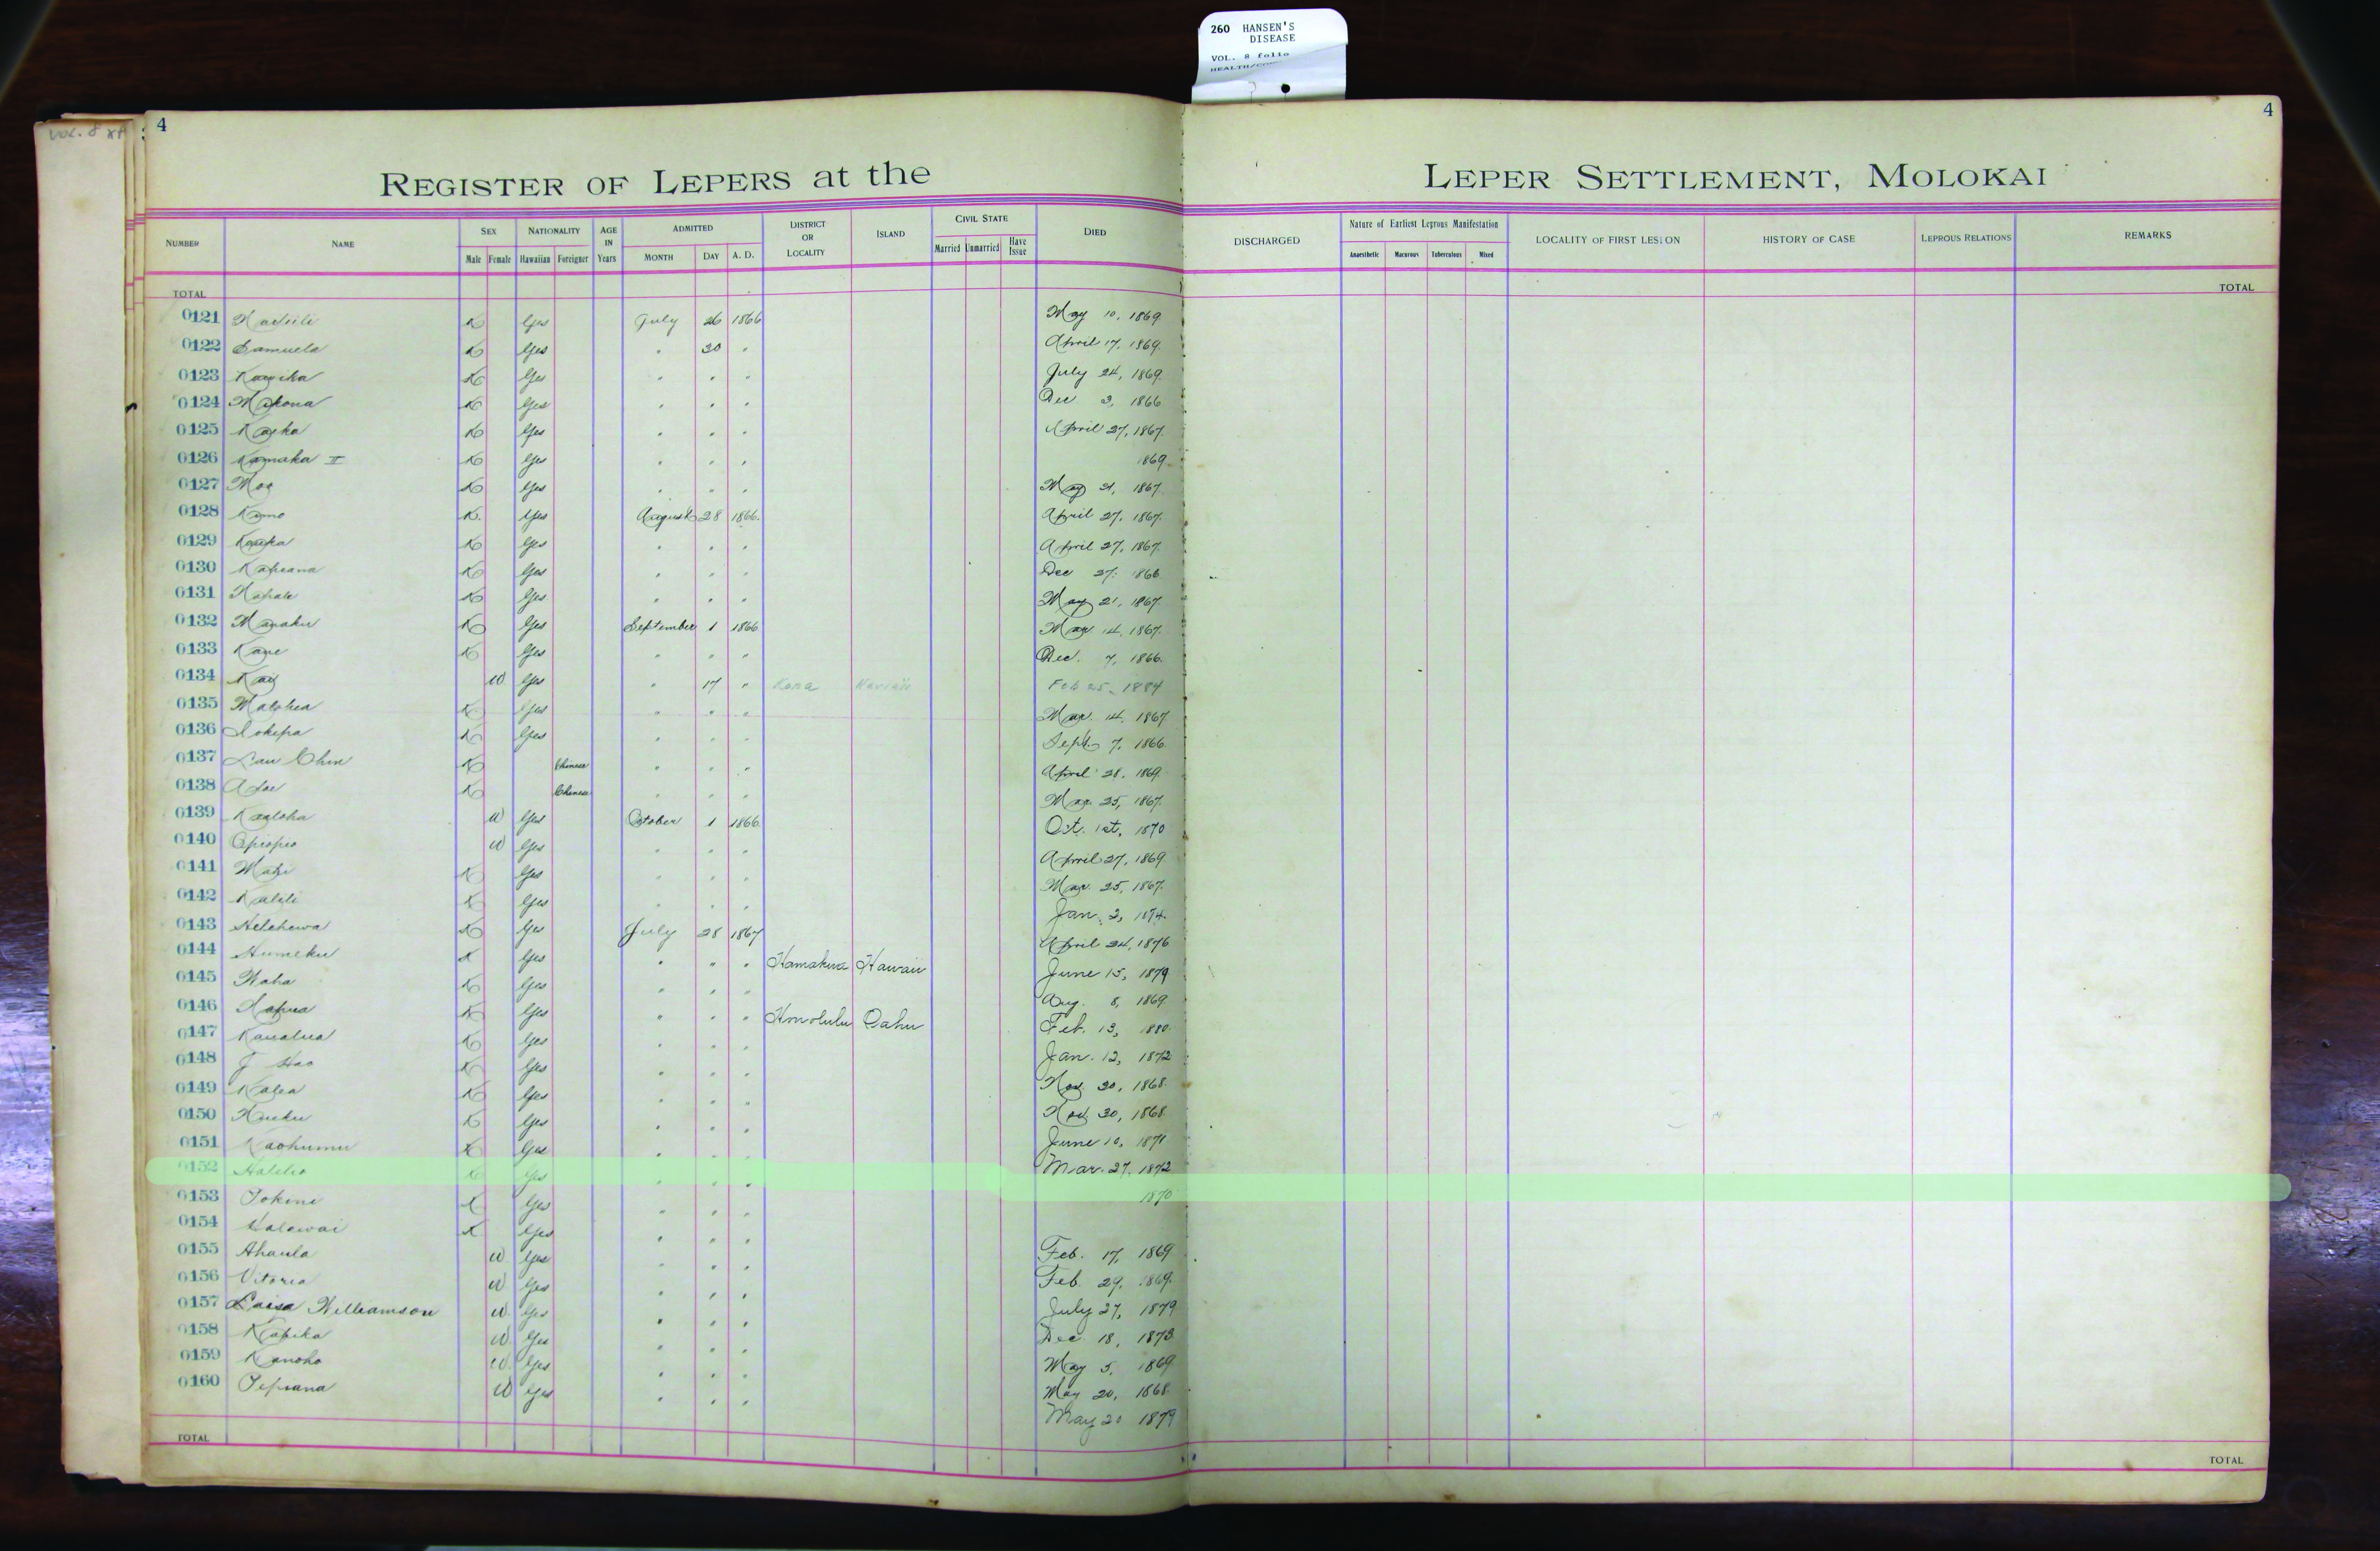 260 HANSEN'S
DISEASE
VOL. 8 folio
4
4
REGISTER OF LEPERS at the LEPER SETTLEMENT, MOLOKAI
NUMBER NAME SEX NATIONALITY AGE IN Years ADMITTED DISTRICT OR LOCALITY ISLAND CIVIL STATE DIED DISCHARGED Nature of Earliest Leprous Manifestation LOCALITY OF FIRST LESION HISTORY OF CASE LEPROUS RELATIONS REMARKS
Male Female Hawaiian Foreigner MONTH DAY A. D. Married Unmarried Have Issue Anaesthetic Macurous Tuberculous Mixed
TOTAL TOTAL
0121 K Yes July 26 1866 May 10, 1869
0122 Samuela K Yes " 30 " April 17, 1869.
0123 K Yes " " " July 24, 1869.
0124 Makona K Yes " " " Dec. 3, 1866
0125 K Yes " " " April 27, 1867.
0126 Kamaka II K Yes " " " 1869
0127 Moa K Yes " " " May 21, 1867.
0128 Kamo K. Yes August 28 1866. April 27, 1867.
0129 K Yes " " " April 27, 1867.
0130 Kapiana K Yes " " " Dec 27. 1866
0131 K Yes " " " May 21, 1867.
0132 K Yes September 1 1866 Mar 14, 1867.
0133 Kane K Yes " " " Dec. 7, 1866.
0134 Kay W. Yes " 17 " Kona Hawaii Feb 25, 1884
0135 K Yes " " " Mar. 14, 1867
0136 Iokepa K Yes " " " Sept. 7, 1866
0137 Lau Chin K Chinese " " " April 28, 1869.
0138 K Chinese " " " Mar. 25, 1867.
0139 Kaaloha W Yes October 1 1866. Oct. 1st, 1870
0140 Opiopio W Yes " " " April 27, 1869.
0141 K Yes " " " Mar. 25, 1867.
0142 Kalili K Yes " " " Jan. 3, 1874.
0143 Helehewa K Yes July 28 1867 April 24, 1876
0144 Humeku K Yes " " " Hamakua Hawaii June 15, 1879
0145 K Yes " " " Aug. 8, 1869.
0146 K Yes " " " Honolulu Oahu Feb. 13, 1880.
0147 Kaualua K Yes " " " Jan. 12, 1872
0148 K Yes " " " Nov. 30, 1868.
0149 Kalea K Yes " " " Nov. 30, 1868
0150 K Yes " " " June 10, 1871
0151 Kaohumu K Yes " " " Mar. 27, 1872
0152 Halelio K Yes " " " 1870
0153 Iokini K Yes " " "
0154 Kalawai K Yes " " " Feb. 17, 1869
0155 Ahaula W Yes " " " Feb. 29, 1869.
0156 Vitoria W Yes " " " July 27, 1879
0157 Luisa Williamson W Yes " " " Dec. 18, 1873.
0158 Kapika W. Yes " " " May 5, 1869
0159 Kanoho W. Yes " " " May 20, 1868
0160 Tepiana W Yes " " " May 20 1879
TOTAL TOTAL